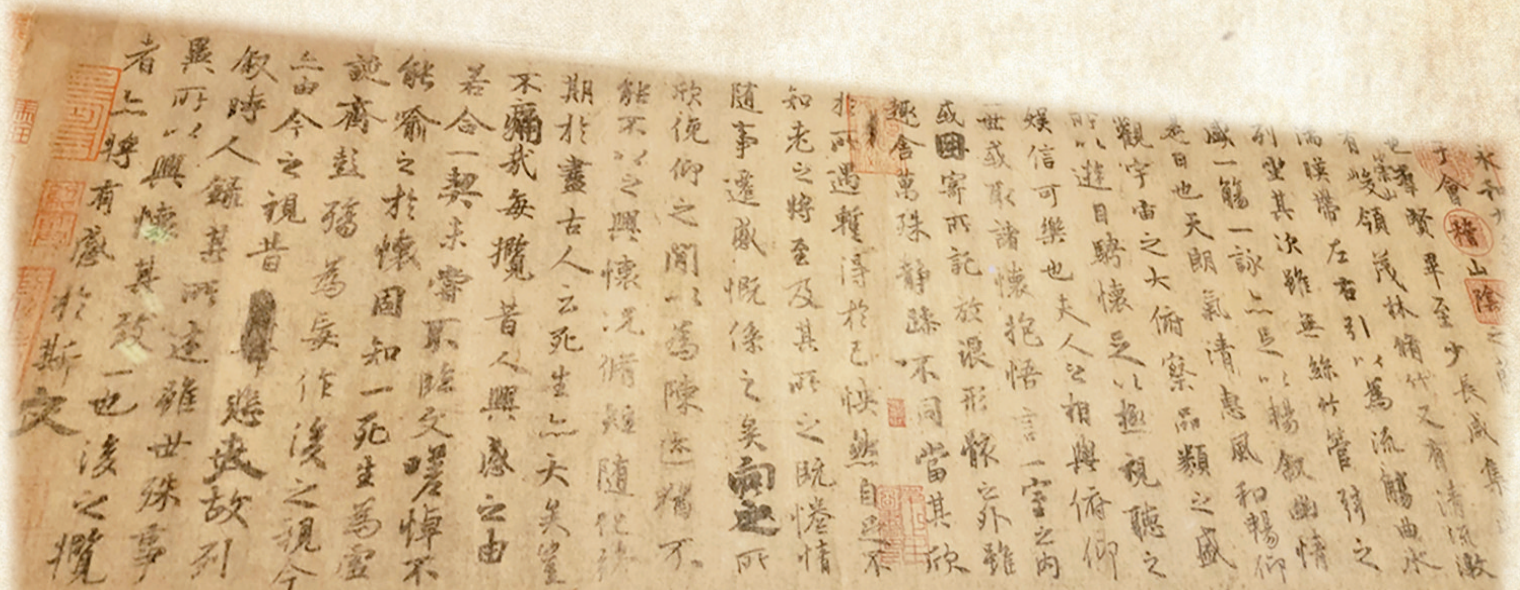 永和九
于會稽山陰之
也羣賢畢至少長咸集此
有崇山峻領茂林脩竹又有清流激
湍暎帶左右引以為流觴曲水
列坐其次雖無絲竹管弦之
盛一觴一詠亦足以暢敘幽情
是日也天朗氣清惠風和暢仰
觀宇宙之大俯察品類之盛
所以遊目騁懷足以極視聽之
娛信可樂也夫人之相與俯仰
世或取諸懷抱悟言一室之內
或因寄所託放浪形骸之外雖
趣舍萬殊靜躁不同當其欣
於所遇暫得於己怏然自足不
知老之將至及其所之既惓情
隨事遷感慨係之矣向之所
欣俛仰之閒以為陳迹猶不
能不以之興懷況脩短隨化終
期於盡古人云死生亦大矣豈
不痛哉每攬昔人興感之由
若合一契未嘗不臨文嗟悼不
能喻之於懷固知一死生為虛
誕齊彭殤為妄作後之視今
亦由今之視昔悲夫故列
敘時人錄其所述雖世殊事
異所以興懷其致一也後之攬
者亦將有感於斯文